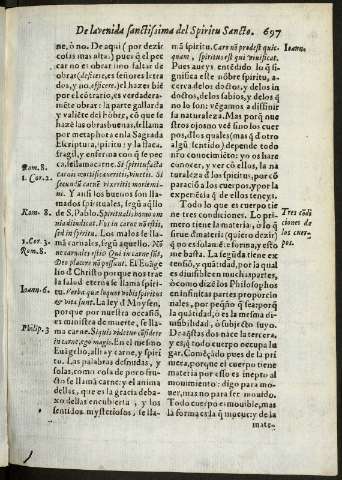 De la venida sanctissima del Spiritu Sancto. 697
ne, ò no. De aqui (por dezir
cosas mas altas) pues q̃ el pec
car no es obrar sino faltar de
obrar (deficere, es señores letra
dos, y no efficere,) el hazer bié
por el cótrario, es verdadera-
méte obrar: la parte gallarda
y valiéte del hóbre, có que se
haze las obras buenas, se llama
por metaphora en la Sagrada
Escriptura, spiritu: y la flaca,
fragil, y enferma con q̃ se pe-
ca, se llama carne. Si spiritu facta
carnis mortificaveritis, vivetis. Si
secundũ carnẽ vixeritis moriemi-
ni. Y ansi los buenos son lla-
mados spirituales, segũ aq̃llo
de S. Pablo. Spiritualis homo om
nia diiudicat. Vos in carne nõ estis,
sed in spiritu. Los malos se lla-
mã carnales, segũ aquello. Nõ
ne carnales estis? Qui in carne sũt,
Deo placere nõ possunt. El Euáge
lio d̃ Christo porque nos trae
la salud eterna se llama spiri-
tu. Verba quæ loquor vobis spiritus
et vita sunt. La ley d̃ Moysen,
porque por nuestra occasió,
es ministra de muerte, se lla-
ma carne. Si quis videtur cõfidere
in carne, ego magis. En el mesmo
Euágelio, alli ay carne, y spiri
tu. Las palabras desnudas, y
solas, como cosa de poco fru-
cto se llamã carne: y el anima
dellas, que es la gracia deba-
xo dellas encubierta, y los
sentidos mysteriosos, se lla-
Rom. 8.
1. Cor. 2.
Rom. 8.
1. Cor. 3.
Rom. 8.
Ioann. 6.
Philip. 3
mã spiritu. Caro nõ prodest quic-
quam, spiritus est qui vivificat.
Pues aueys entédido lo q̃ si-
gnifica este nóbre spiritu, a-
cerca de los doctos, y delos in
doctos, delos sabios, y delos q̃
no lo son: vẽgamos a diffinir
su naturaleza. Mas porq̃ nue
stros ojos no veẽ sino los cuer
pos, d̃ los quales (mas q̃ d̃ otro
algũ sentido) depende todo
nr̃o conocimiéto: yo os haré
conocer, y ver có ellos, la na
turaleza d̃ los spiritus, por có
paració a los cuerpos, y por la
experiẽcia q̃ de ellos teneys.
Todo lo que es cuerpo tie
ne tres condiciones. Lo pri-
mero tiene la materia; ò lo q̃
tiene de materia (quiero dezir)
q̃ no es sola mẽte forma, y esto
me basta. La segũda tiene ex
tensió, y quátidad, por la qual
es diuisible en muchas partes,
ò como dizé los Philosophos
en infinitas partes proporcio
nales, por peq̃ño q̃ sea: porq̃
la quátidad, ò es la mesma di-
uisibilidad, ò subjecto suyo.
De aq̃stas dos nace la tercera,
y es, q̃ todo cuerpo occupa lu
gar. Comẽçádo pues de la pri
mera, porque el cuerpo tiene
materia por esso es inepto al
mouimiento: digo para mo-
uer, mas no para ser mouido.
Todo cuerpo es mouible, mas
la forma es la q̃ mueue: y de la
mate-
Ioann.
Tres cõdi
ciones de
los cuer-
pos.